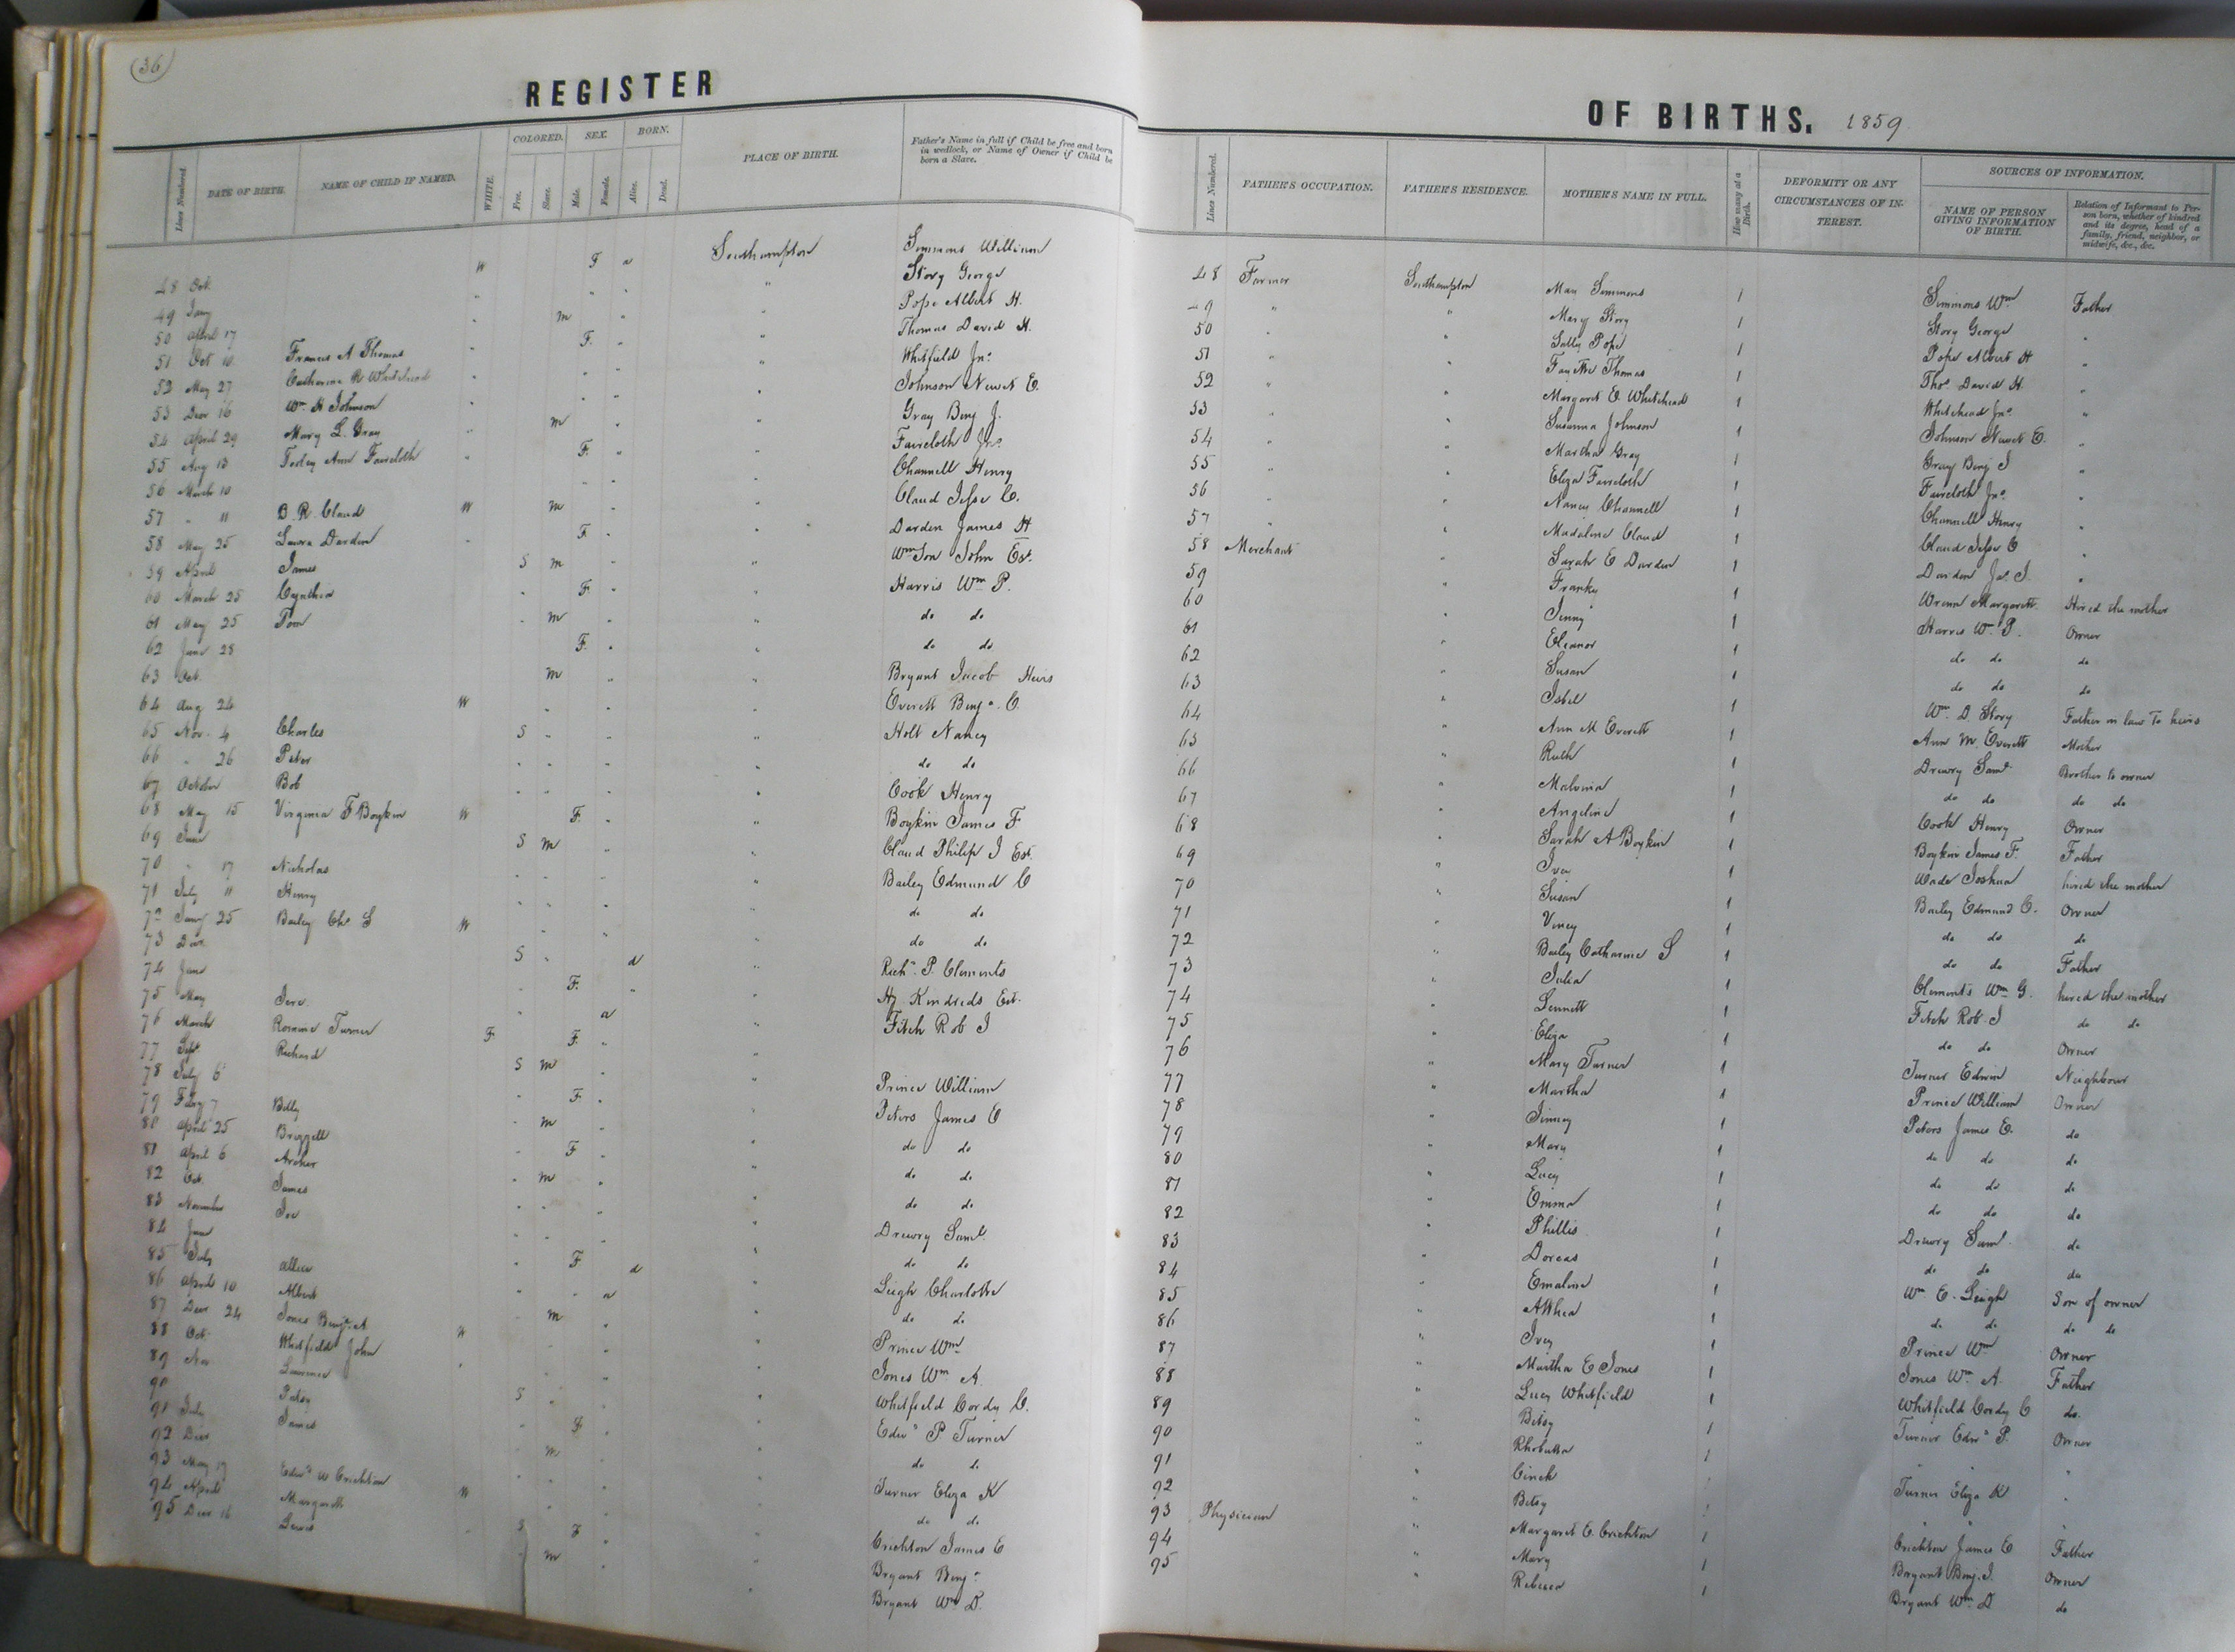 36
REGISTER
OF BIRTHS. 1859
Lines Numbered. DATE OF BIRTH. NAME OF CHILD IF NAMED. WHITE. COLORED. Free. Slave. SEX. Male. Female. BORN. Alive. Dead. PLACE OF BIRTH. Father's Name in full if Child be free and born in wedlock, or Name of Owner if Child be born a Slave.
Lines Numbered. FATHER'S OCCUPATION. FATHER'S RESIDENCE. MOTHER'S NAME IN FULL. How many at a Birth. DEFORMITY OR ANY CIRCUMSTANCES OF INTEREST. SOURCES OF INFORMATION. NAME OF PERSON GIVING INFORMATION OF BIRTH. Relation of Informant to Person born, whether of kindred and its degree, head of a family, friend, neighbor, or midwife, &c., &c.
48 Oct W F a Southampton Simmons William 48 Farmer Southampton Mary Simmons 1 Simmons Wm Father
49 Jany " " " " Story George 49 " " Mary Story 1 Story George "
50 April 17 " m " " Pope Albert H. 50 " " Sally Pope 1 Pope Albert H "
51 Oct 10 Francis A Thomas " F. " " Thomas David H. 51 " " Thomas 1 Thos David H. "
52 May 27 Catharine R Whitehead " " " " Whitfield Jno 52 " " Margaret E Whitehead 1 Whitehead Jno "
53 Decr 16 Wm H Johnson " " " " Johnson E. 53 " " Susanna Johnson 1 Johnson E. "
54 April 29 Mary L. Gray " m " " Gray Benj J. 54 " " Martha Gray 1 Gray Benj J "
55 Aug 13 Ann Faircloth " F. " " Faircloth Jno 55 " " Eliza Faircloth 1 Faircloth Jno "
56 March 10 " " " " Channell Henry 56 " " Nancy Channell 1 Channell Henry "
57 " 11 B. R. Claud W m " " Claud Jesse C. 57 " " Madaline Claud 1 Claud Jesse C "
58 May 25 Laura Darden " F. " " Darden James H 58 Merchant " Sarah E Darden 1 Darden Jas. "
59 April James S m " " John Est. 59 " Franky 1 Wrenn Margarett Hired the mother
60 March 25 Cynthia " F. " " Harris Wm P. 60 " Jinny 1 Harris Wm P. Owner
61 May 25 Tom " m " " do do 61 " Eleanor 1 do do do
62 June 28 " F. " " do do 62 " Susan 1 do do do
63 Oct. m " " Bryant Jacob Heirs 63 " Isbel 1 Wm D. Story Father in law to heirs
64 Aug 24 W " " " Everett Benj. C. 64 " Ann M Everett 1 Ann M. Everett Mother
65 Nov. 4 Charles S " " " Holt Nancy 65 " Ruth 1 Drewry Saml Brother to owner
66 " 26 Peter " " " " do do 66 " Malvina 1 do do do do
67 October Bob " " " " Cook Henry 67 " Angeline 1 Cook Henry Owner
68 May 15 Virginia F Boykin W F. " " Boykin James F. 68 " Sarah A Boykin 1 Boykin James F. Father
69 June S m " " Claud Philip J Est. 69 " Ivey 1 Wade Joshua hired the mother
70 " 17 Nicholas " " " " Bailey Edmund C 70 " Susan 1 Bailey Edmund C. Owner
71 July 11 Henry " " " " do do 71 " Viney 1 do do do
72 Jany 25 Bailey Chs S W " " " do do 72 " Bailey Catharine S 1 do do Father
73 Decr S " d " Richd. P. Clements 73 " Julia 1 Clements Wm G. hired the mother
74 June " F. " " Hy Kindreds Est. 74 " 1 Fitch Rob. J do do
75 May " " a " Fitch Rob J 75 " Eliza 1 do do Owner
76 March Turner F F. " " 76 " Mary Turner 1 Turner Edwin Neighbour
77 Sept. Richard S m " " Prince William 77 " Martha 1 Prince William Owner
78 July 6 " F. " " Peters James E 78 " Jinney 1 Peters James E. do
79 Feby 7 Billy " m " " do do 79 " Mary 1 do do do
80 April 25 " F " " do do 80 " Lucy 1 do do do
81 April 6 Archer " m " " do do 81 " Emma 1 do do do
82 Oct. James " " " " Drewry Saml. 82 " Phillis 1 Drewry Saml. do
83 November " " " " do do 83 " Dorcas 1 do do do
84 June " F d " Leigh Charlotte 84 " Emaline 1 Wm E. Leigh Son of owner
85 July " " a " do do 85 " Althea 1 do do do do
86 April 10 Albert " m " " Prince Wm 86 " Ivey 1 Prince Wm Owner
87 Decr 24 Jones W " " " Jones Wm A. 87 " Martha E Jones 1 Jones Wm A. Father
88 Oct. Whitfield John " " " " Whitfield Cordy C. 88 " Lucy Whitfield 1 Whitfield Cordy C do.
89 Nov Lawrence S " " " Edwd P Turner 89 " Betsy 1 Turner Edwd P. Owner
90 Patsy " F " " do do 90 " 1 " "
91 July James " m " " Turner Eliza K 91 " 1 Turner Eliza K "
92 Decr " " " " do do 92 " Betsy 1 " "
93 May 17 Edwd W Crichton W " " " Crichton James E 93 Physician " Margaret E. Crichton 1 Crichton James E Father
94 April Margarett S F " " Bryant Benj. 94 " Mary 1 Bryant Benj. J. Owner
95 Decr 16 Lewis m " " Bryant Wm D. 95 " Rebecca 1 Bryant Wm D do